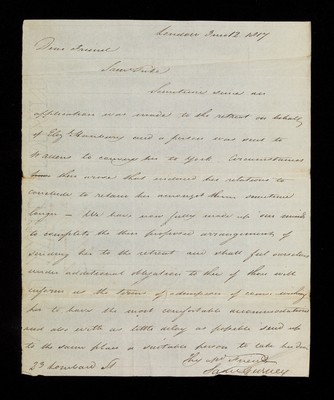 London June 12 1817
Dear Friend
Saml Tuke
Sometime since an
application was made to the retreat on behalf
of Eliz Hanbury and a person was sent to
to convey her to York Circumstances
then arose that induced her relations to
conclude to retain her amongst them sometime
longer – We have now fully made up our minds
to complete the then proposed arrangement of
sending her to the retreat and shall feel ourselves
under additional obligation to thee if thou wilt
inform us the terms of admission of course wishing
her to have the most comfortable accommodation
and also with as little delay as possible send up
to the same place a suitable person to take her down
Thy Friend
23 Lombard St
Saml Gurney